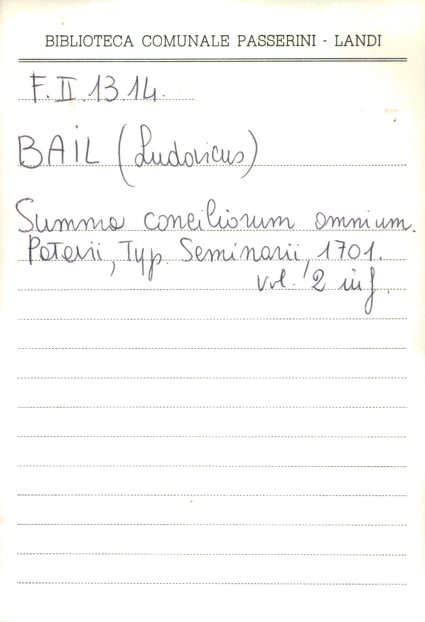 BIBLIOTECA COMUNALE PASSERINI - LANDI
F. II. 13.14.
BAIL (Ludovicus)
Summa conciliorum omnium.
Patavii, Typ. Seminarii, 1701.
vol. 2 in f.